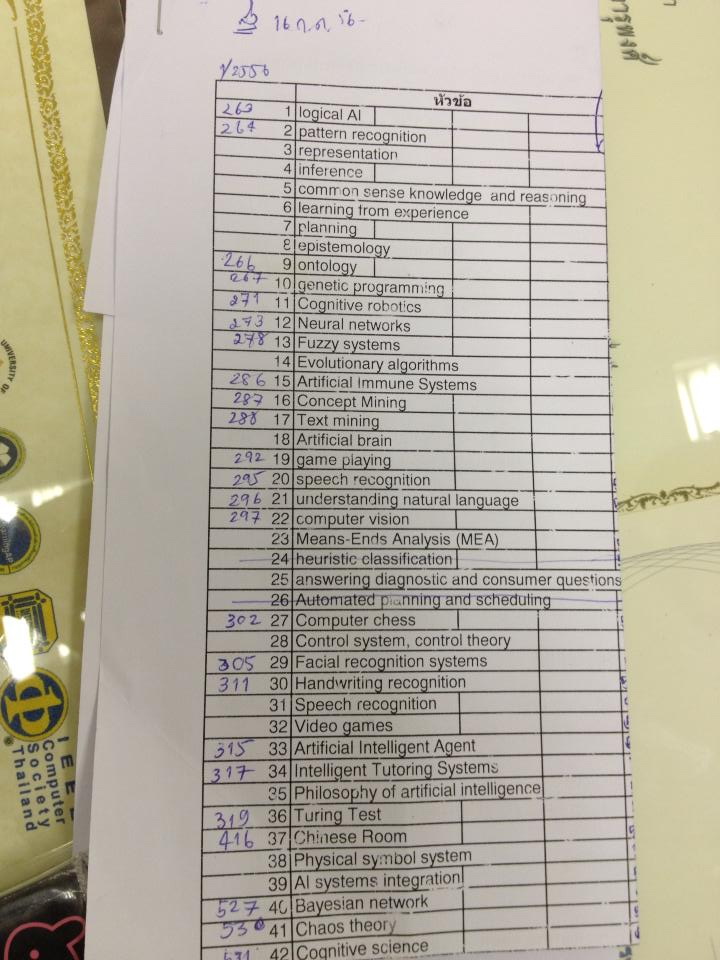 16 ก.ค. 56
1/2556
หัวข้อ
263 1 logical AI
264 2 pattern recognition
3 representation
4 inference
5 common sense knowledge and reasoning
6 learning from experience
7 planning
8 epistemology
266 9 ontology
267 10 genetic programming
271 11 Cognitive robotics
273 12 Neural networks
278 13 Fuzzy systems
14 Evolutionary algorithms
286 15 Artificial Immune Systems
287 16 Concept Mining
288 17 Text mining
18 Artificial brain
292 19 game playing
295 20 speech recognition
296 21 understanding natural language
297 22 computer vision
23 Means-Ends Analysis (MEA)
24 heuristic classification
25 answering diagnostic and consumer questions
26 Automated planning and scheduling
302 27 Computer chess
28 Control system, control theory
305 29 Facial recognition systems
311 30 Handwriting recognition
31 Speech recognition
32 Video games
315 33 Artificial Intelligent Agent
317 34 Intelligent Tutoring Systems
35 Philosophy of artificial intelligence
319 36 Turing Test
416 37 Chinese Room
38 Physical symbol system
39 AI systems integration
527 40 Bayesian network
530 41 Chaos theory
531 42 Cognitive science
UNIVERSITY OF
IEEE
Computer
Society
Thailand